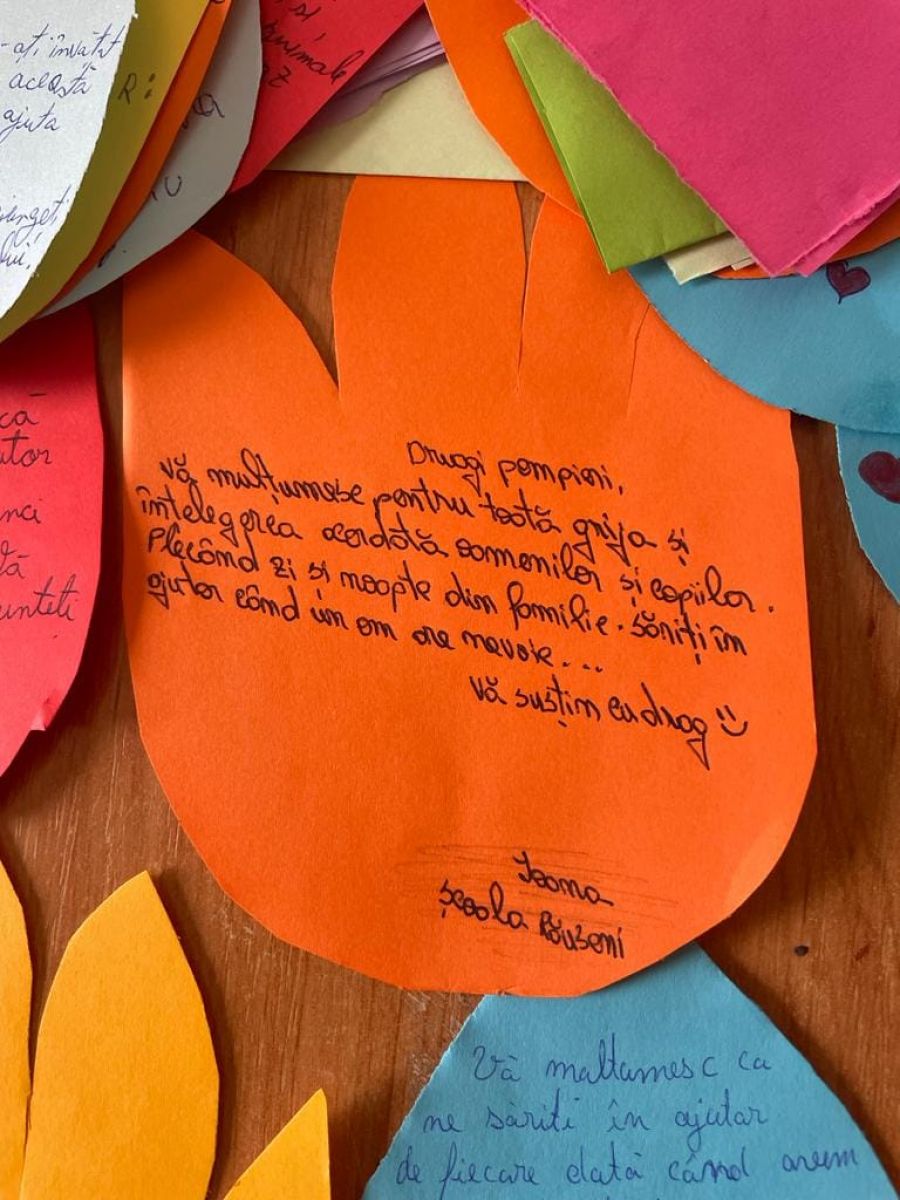 -ați învațat
această
ajuta
R:
și
animale
Dragi pompieri,
Vă mulțumesc pentru toată grija și
întelegerea acordată oamenilor și copiilor.
Plecând zi și noapte din familie. Săriți în
ajutor când un om are nevoie...
Vă susțin cu drag
Ioana
Școala Băuseni
că
nci
tă
Vă maltumesc ca
ne săriti în ajutar
de fiecare dată când avem